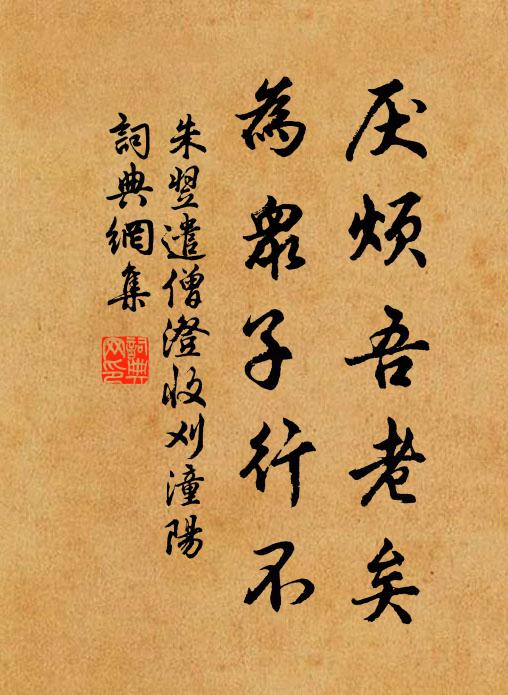 厌烦吾老矣
為衆子行不
朱翌遣僧澄收刈潼陽
詞典網集
詞典网印